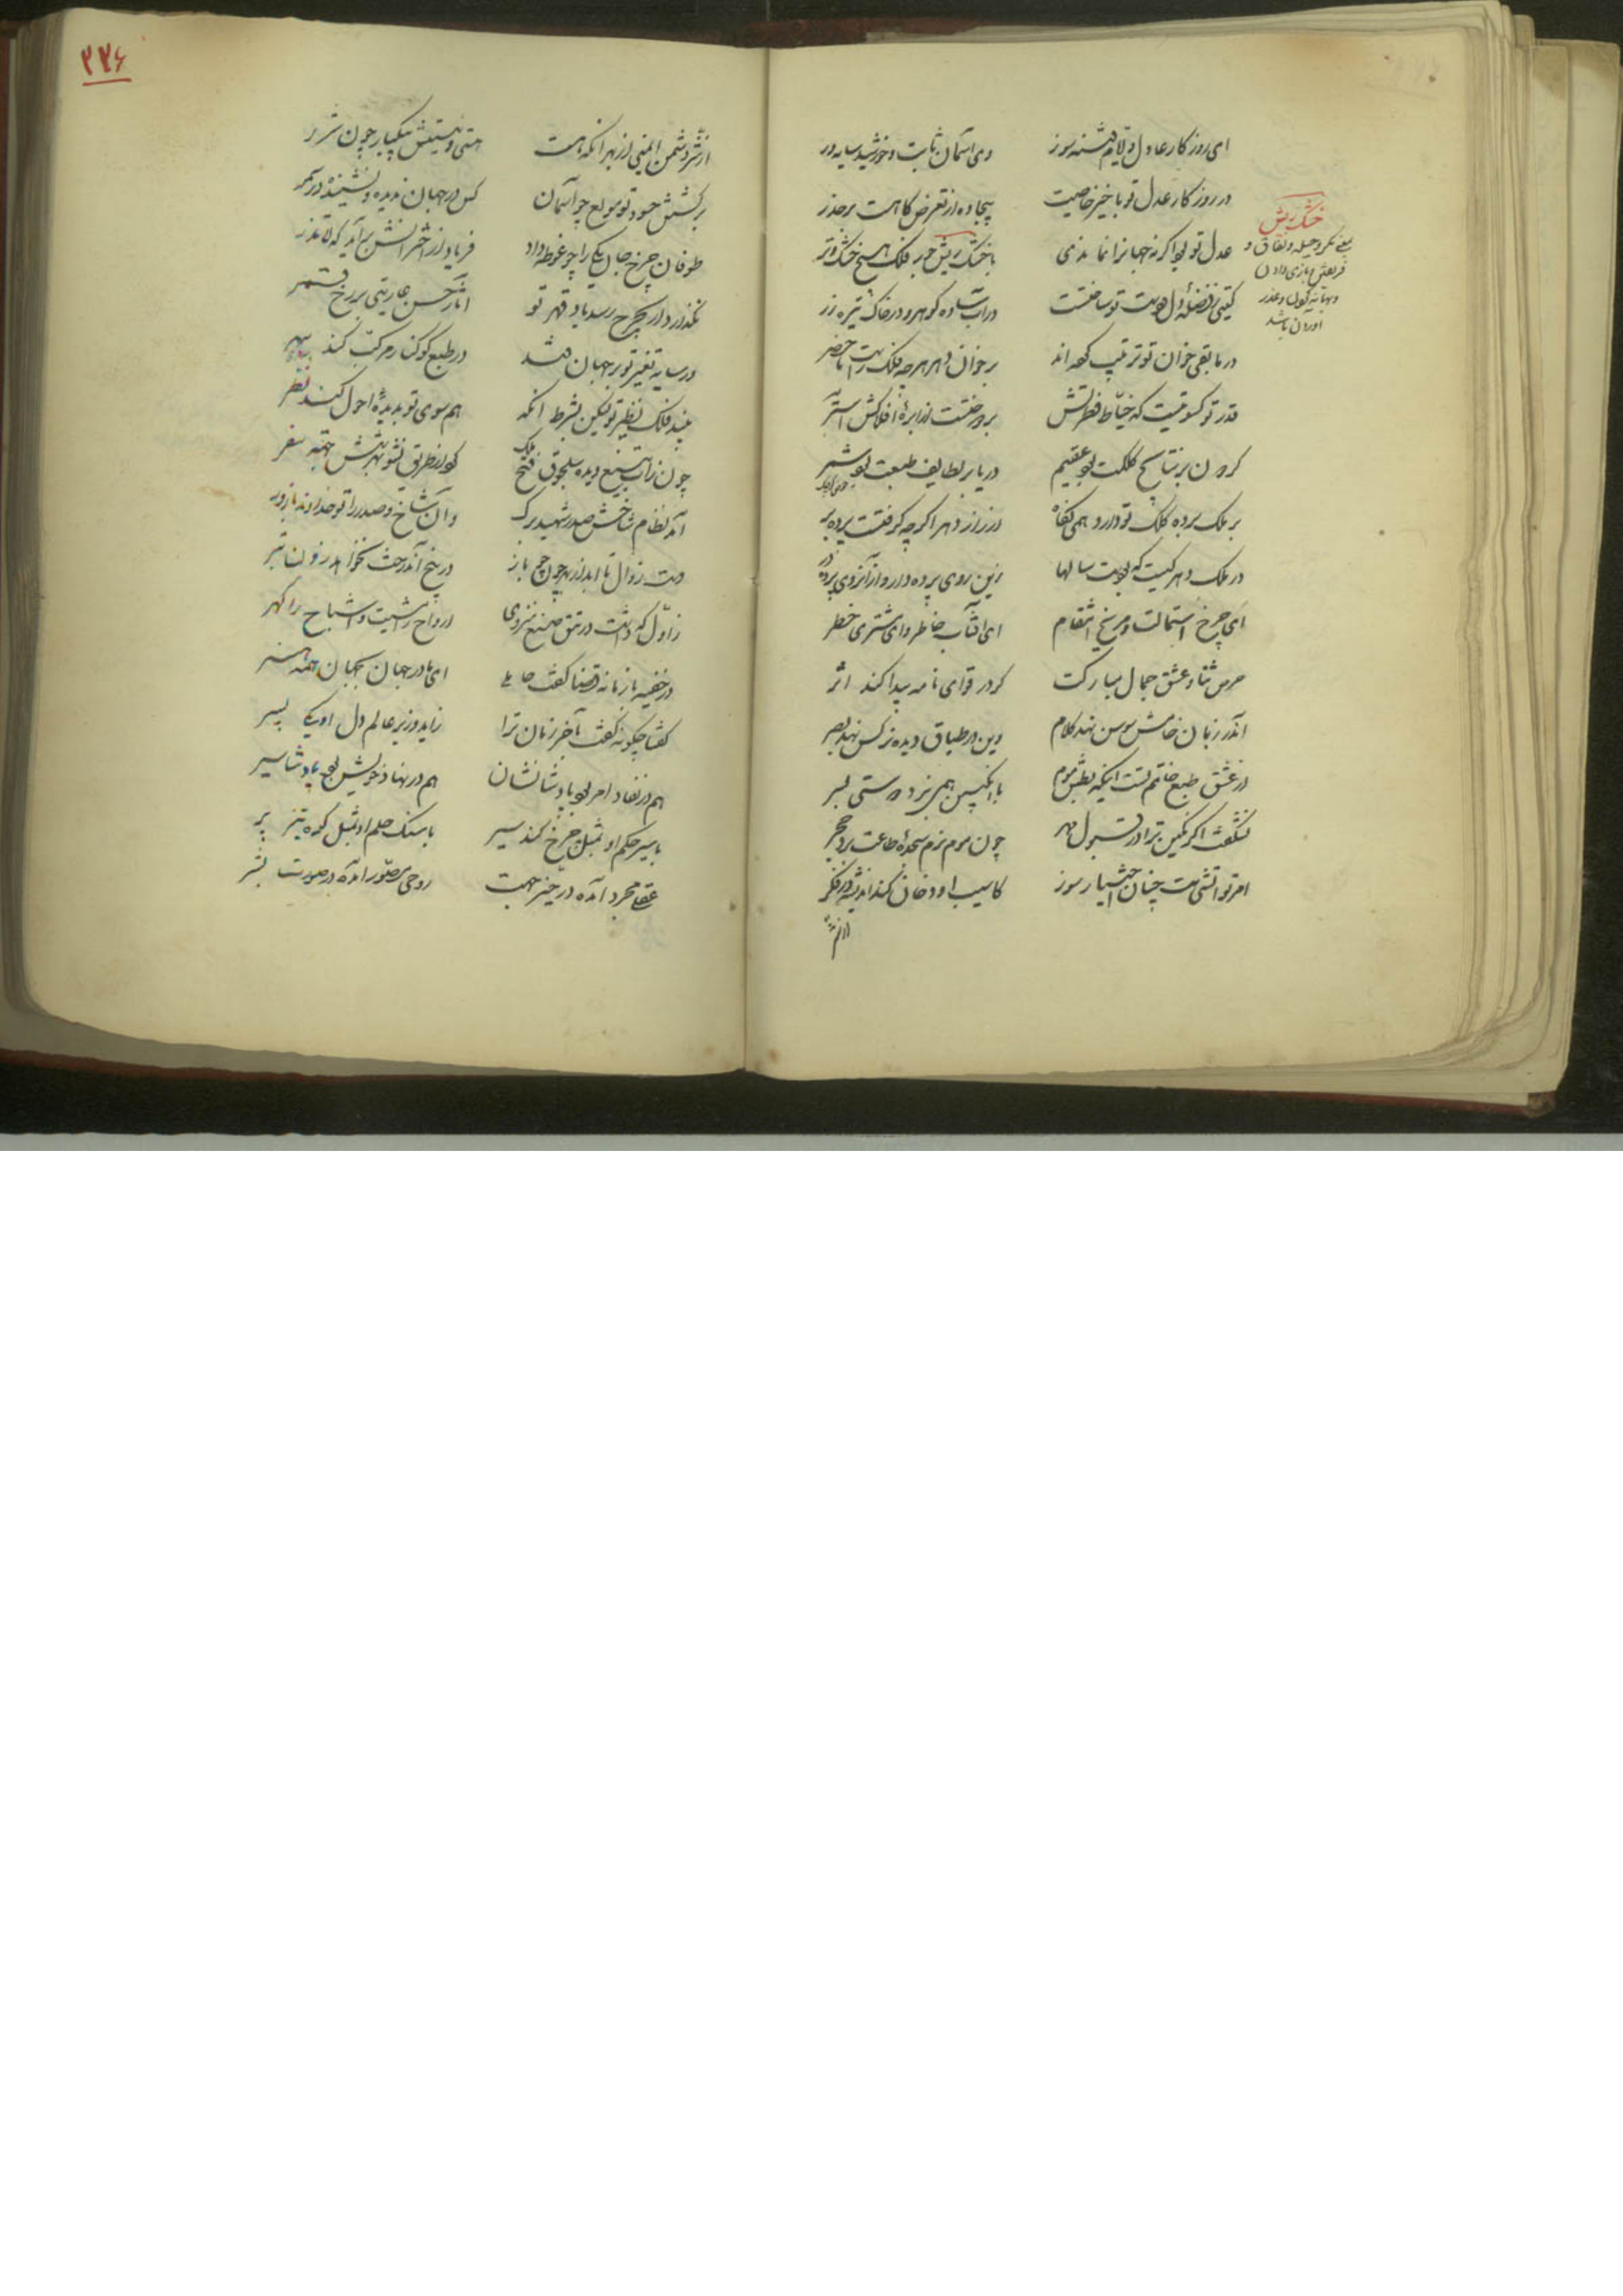 ای روزکار عادل و ایام فتنه سوز وی آسمان ثابت و خورشید سایه ور
در روزکار عدل تو با خیز خاصیت بیجاده از تعرض کاهست برحذر
عدل تو بود اکرنه جهانرا نماندی با خشک ریش جور فلک هیچ خشک و تر
کیتی ز فضلهٔ دل و دست تو ساختست در آب ساده کوهر و در خاک تیره زر
در مابقی خوان تو ترتیب کرده اند بر خوان دهر هرچه فلک راست ماحضر
قدر تو کسوتیست که خیاط فطرتش بردوختست از ابرهٔ افلاکش آستر
کردون بر نتایج کلکت بود عقیم دریا بر لطایف طبعت بود شمر
بر ملک پرده کلک تو دارد همی نکاه در راز دهر اکرچه کرفتست پرده بر
در ملک دهر کیست که بودست سالها زین روی پرده دار و از آنروی پرده در
ای چرخ استمالت و مریخ انتقام ای آفتاب خاطر و ای مشتری خطر
حرص ثنا و عشق جمال مبارکت کر در قوای نامیه پیدا کند اثر
اندر زبان خامش سوسن نهد کلام وین در طباق دیده نرکس نهد بصر
در عشق طبع خاتم تست اینکه بطبع موم با انکبین همی نبرد دوستی بسر
نشکفت اکر نکین ترا در قبول مهر چون موم نرم سجدهٔ طاعت برد حجر
امر تو آتشی ست چنان اختیار سوز کاسیب او دخان کند اندیشه در فکر
خشک ریش
بمعنی مکر و حیله و نفاق و
فریفتن و بازی دادن
و بهانه کردن و عذر
آوردن باشد
۲۲۶
از شر دشمن ایمنی از بهر آنکه هست هستی و نیستیش بیکبار چون شرر
بر کشتن حسود تو مولع چو آسمان کس در جهان ندیده و نشنیده در سمر
طوفان چرخ جان یکی را چو غوطه داد فریاد از اخترانش برآید که لا تذر
نکذارد ار بچرخ رسد باد قهر تو آثار حسن عاریتی بر رخ قمر
در سایه تغیر تو بر جهان فتد در طبع کوکنار مرکب کند سهر
بیند فلک نظیر تو لیکن بشرط آنکه هم سوی تو بدیدهٔ احول کند نظر
چون زاب تیغ دیده سلجوق فتح ملک
آمد نظام شاخش و صدر شهید برک وان شاخ و صدر را تو خداوند بارور
زاول که داشت در تتق صنع منزوی ارواح را مشیت و اشباح را کهر
در خفیه با زمانه قضا کفت حاملی ای مادر جهان بجهان همه هنر
کفتا چکونه کفت بآخر زمان ترا زاید وزیر عالم دل او یکی پسر
هم در نفاد امر بود پادشا نشان هم در نهاد خویش بود پادشا سیر
با سیر حکم او بمثل چرخ کند سیر با سنک حلم او بمثل کوه تیز پر
عقلی مجرد آمده در حیز جهت روحی مصور آمده در صورت بشر